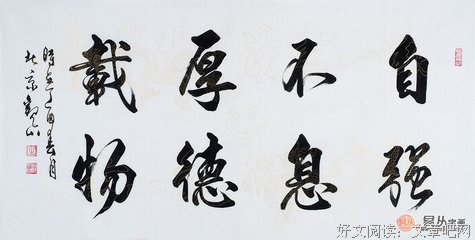 自强
不息
厚德
載物
时在丁酉春月
北京
易从字画
好文阅读：文章吧网